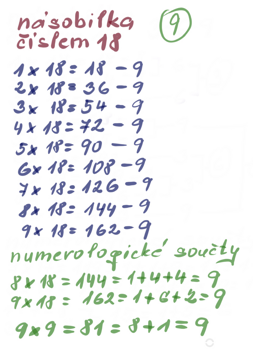 násobilka
číslem 18
9
1 × 18 = 18 – 9
2 × 18 = 36 – 9
3 × 18 = 54 – 9
4 × 18 = 72 – 9
5 × 18 = 90 – 9
6 × 18 = 108 – 9
7 × 18 = 126 – 9
8 × 18 = 144 – 9
9 × 18 = 162 – 9
numerologické součty
8 × 18 = 144 = 1+4+4 = 9
9 × 18 = 162 = 1+6+2 = 9
9 × 9 = 81 = 8+1 = 9